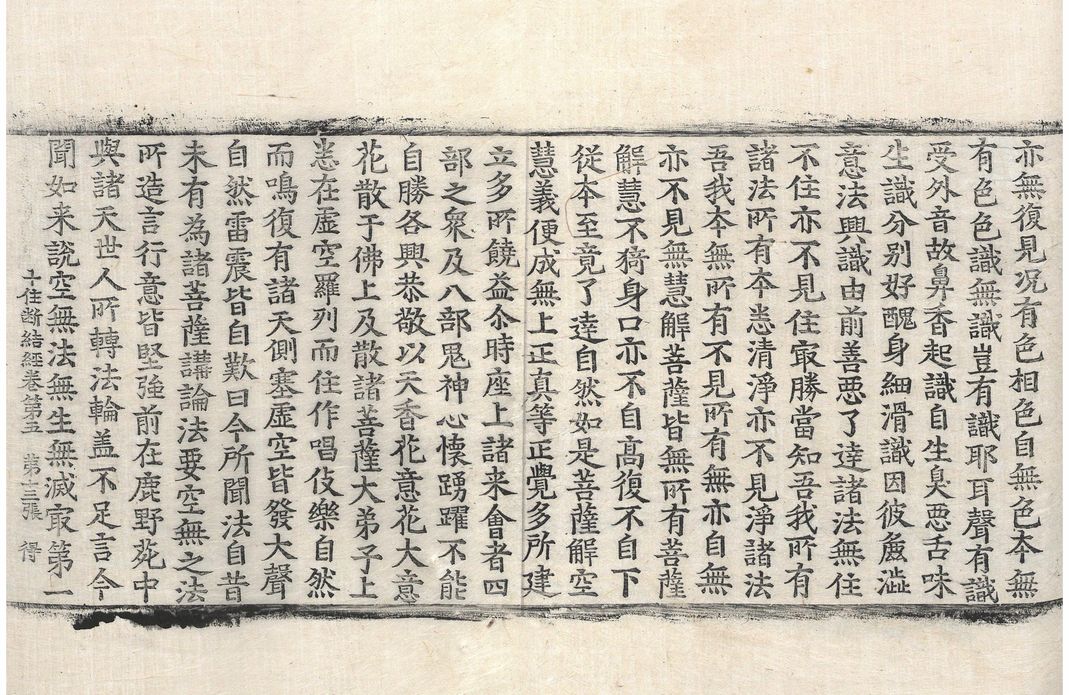 亦無復見况有色相色自無色夲無
有色色識無識豈有識耶耳聲有識
受外音故鼻香起識自生臭惡舌味
生識分別好醜身細滑識因彼麁澁
意法興識由前善惡了達諸法無住
不住亦不見住㝡勝當知吾我所有
諸法所有夲悉清淨亦不見淨諸法
吾我夲無所有不見所有無亦自無
亦不見無慧解菩薩皆無所有菩薩
解慧不猗身口亦不自高復不自下
從夲至竟了達自然如是菩薩解空
慧義便成無上正真等正覺多所建
立多所饒益尒時座上諸来會者四
部之衆及八部鬼神心懷踴躍不能
自勝各興恭敬以天香花意花大意
花散于佛上及散諸菩薩大弟子上
悉在虛空羅列而住作唱伎樂自然
而鳴復有諸天側塞虛空皆發大聲
自然雷震皆自歎曰今所聞法自昔
未有為諸菩薩講論法要空無之法
所造言行意皆堅強前在鹿野苑中
與諸天世人所轉法輪盖不足言今
聞如来說空無法無生無滅㝡第一
十住断結經卷第五 第十三張 得